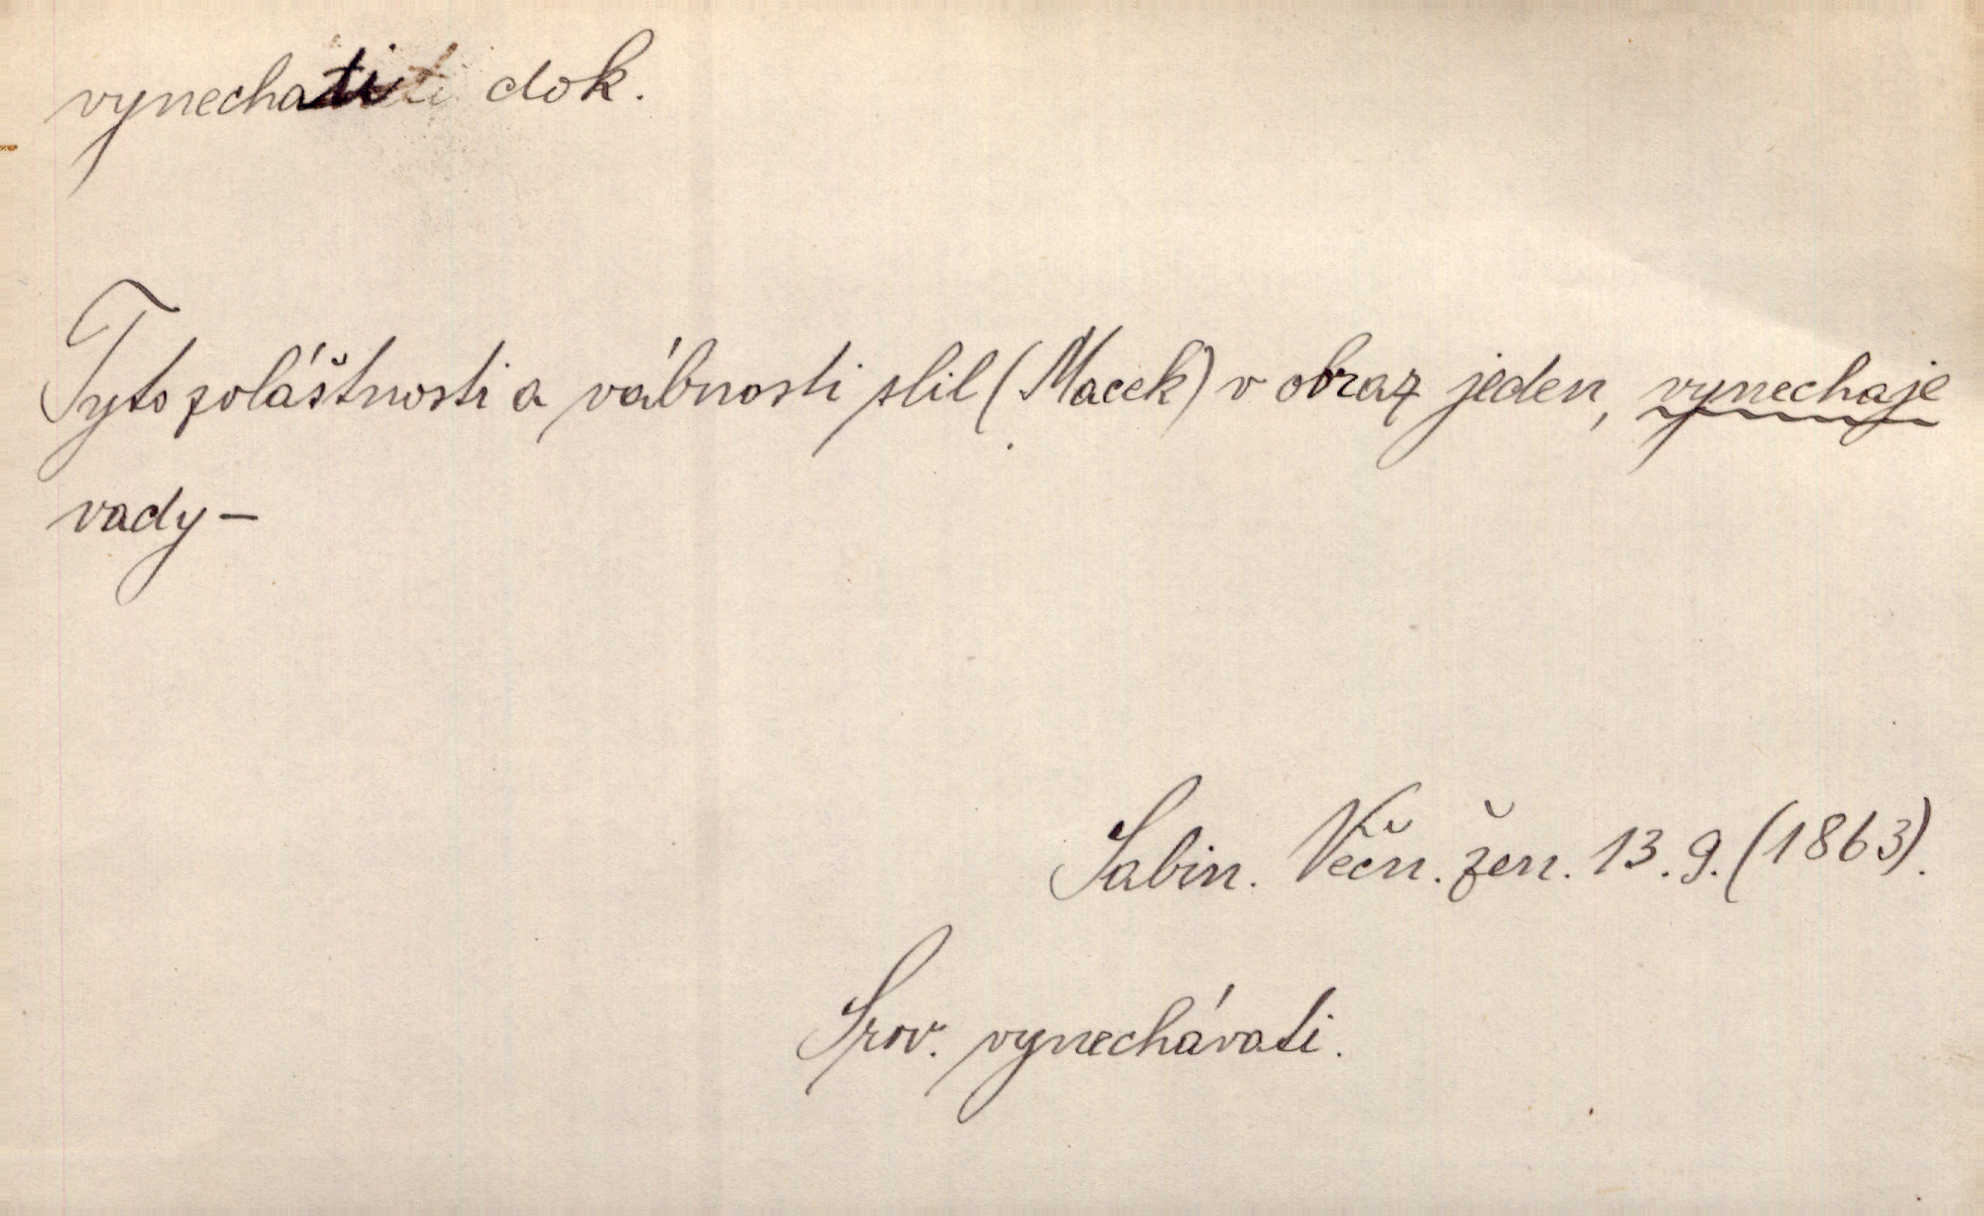 vynechati dok.
Tyto zvláštnosti a vábnosti slil (Macek) v obraz jeden, vynechaje
vady –
Sabin. Věčn. žen. 13.9. (1863).
Srov. vynechávati.